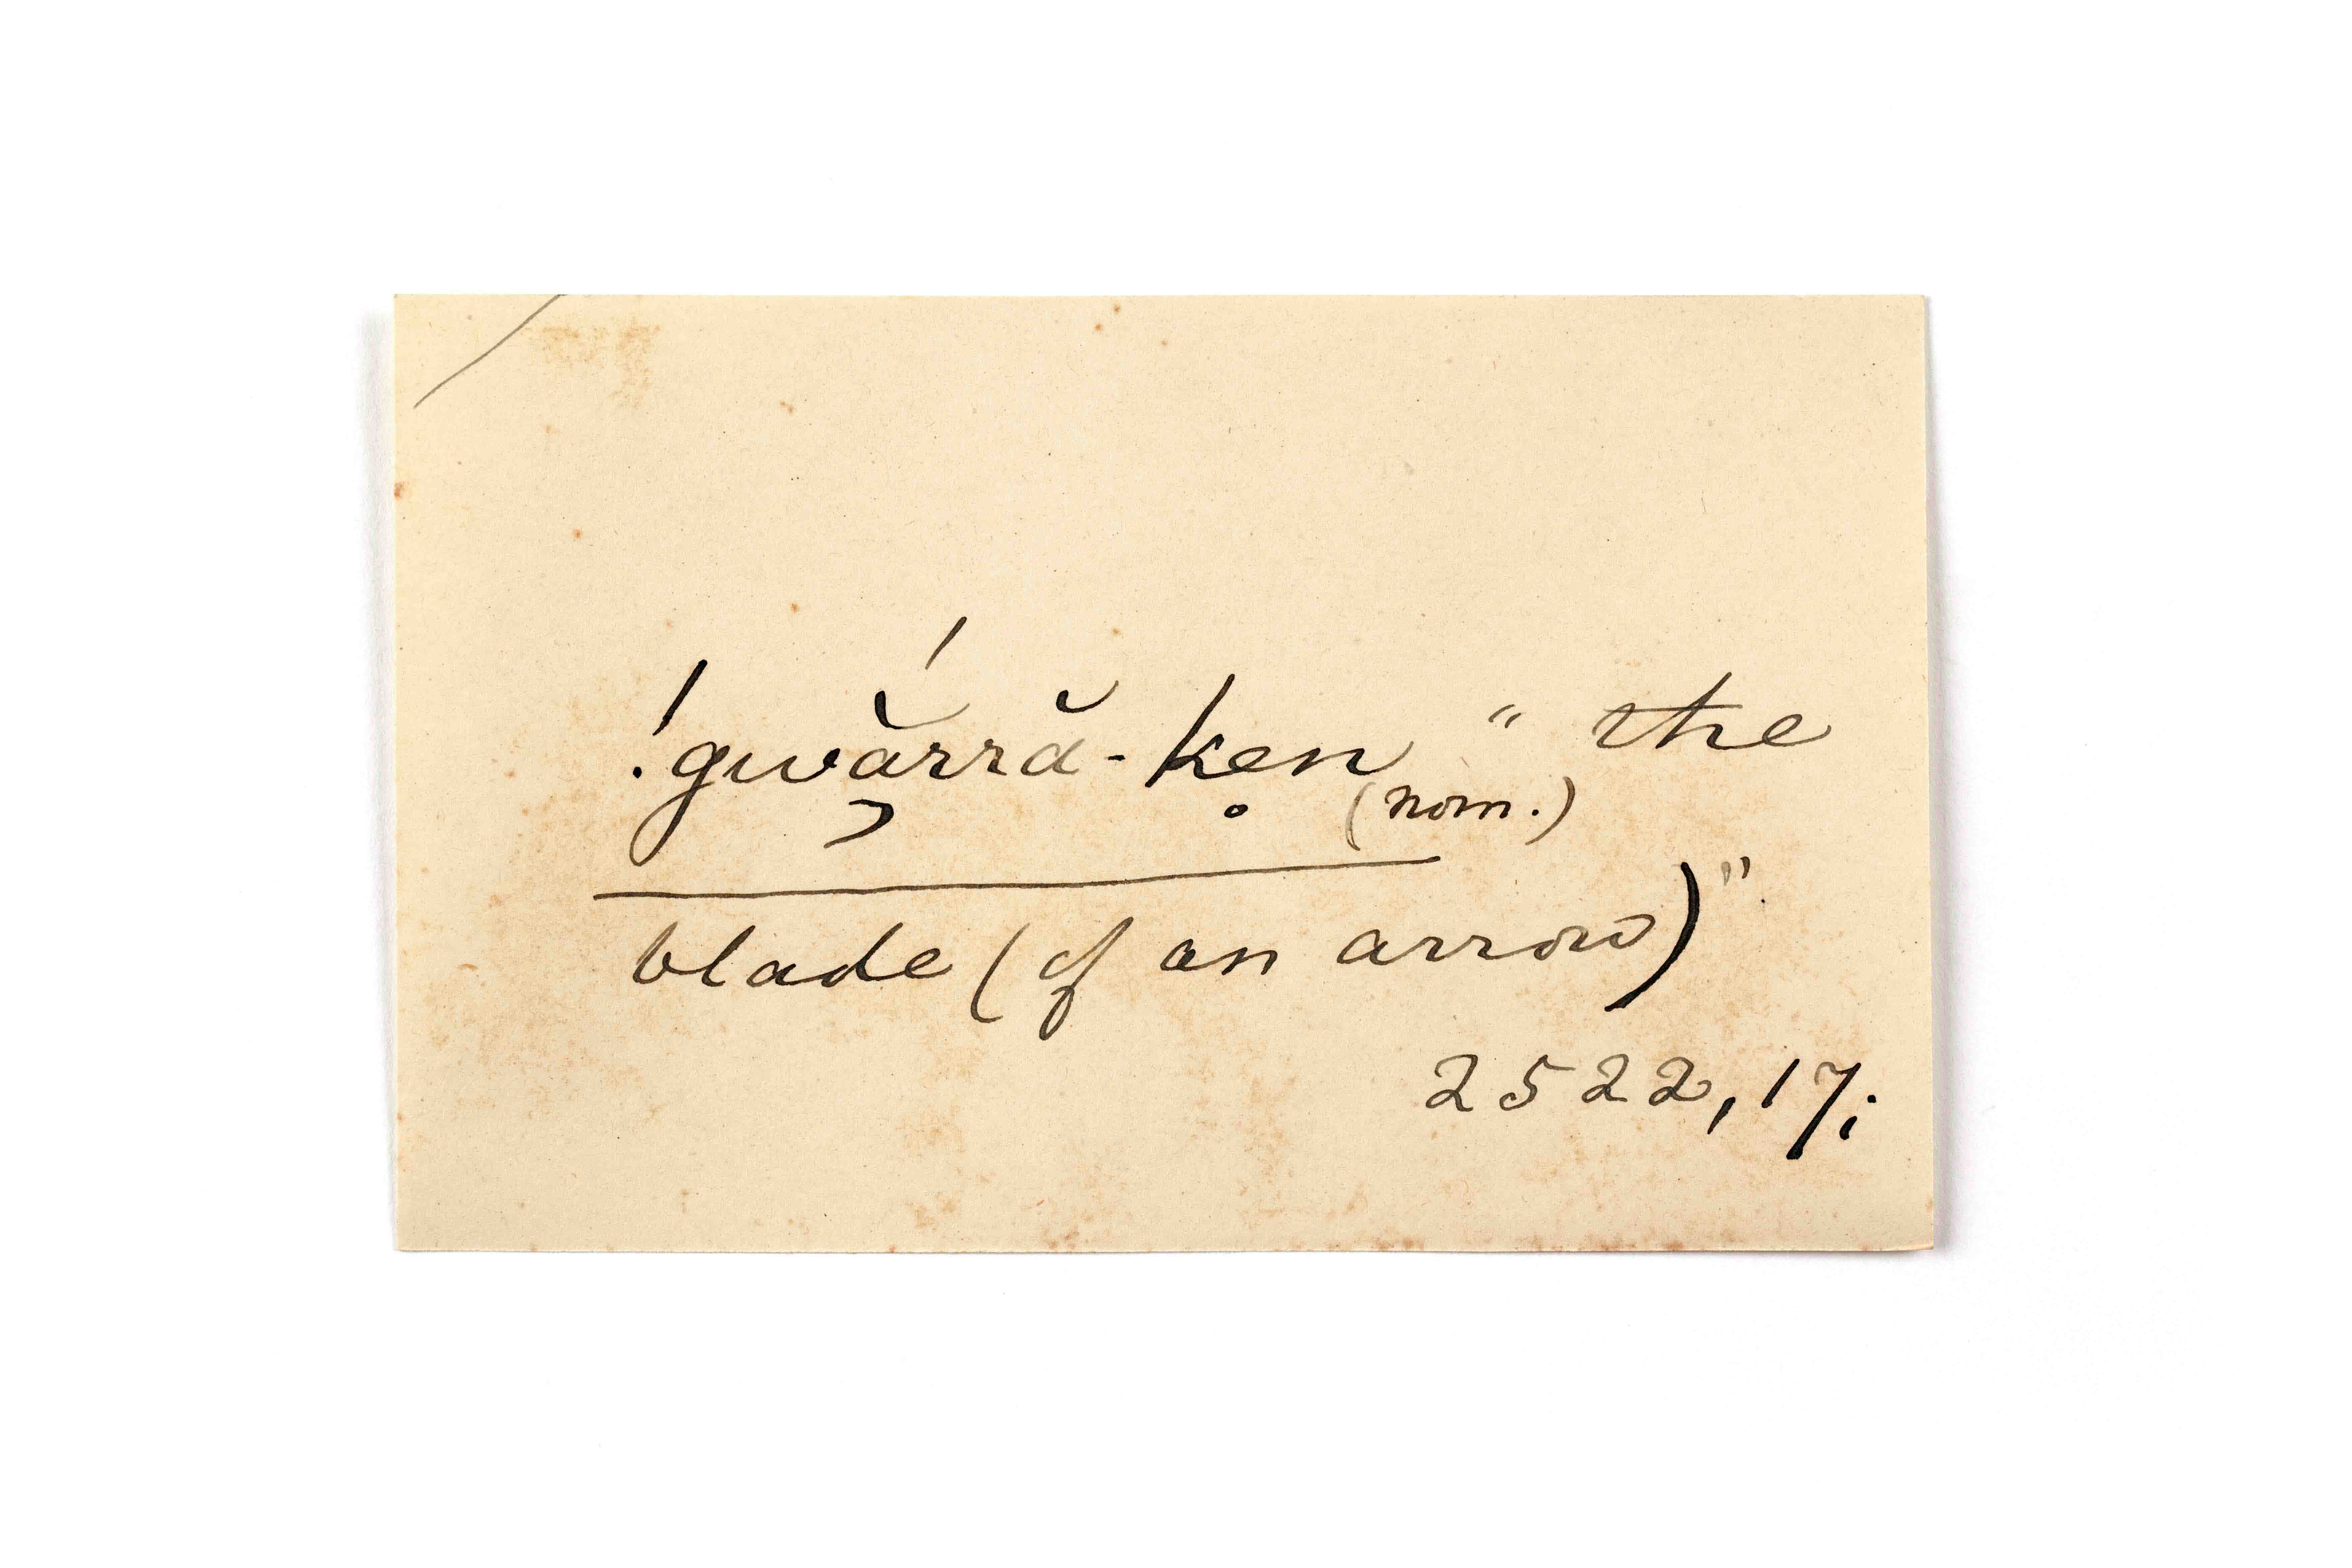 !gwắ̠rră-ke̥n (nom.) " the
blade (of an arrow)"
2522, 17;